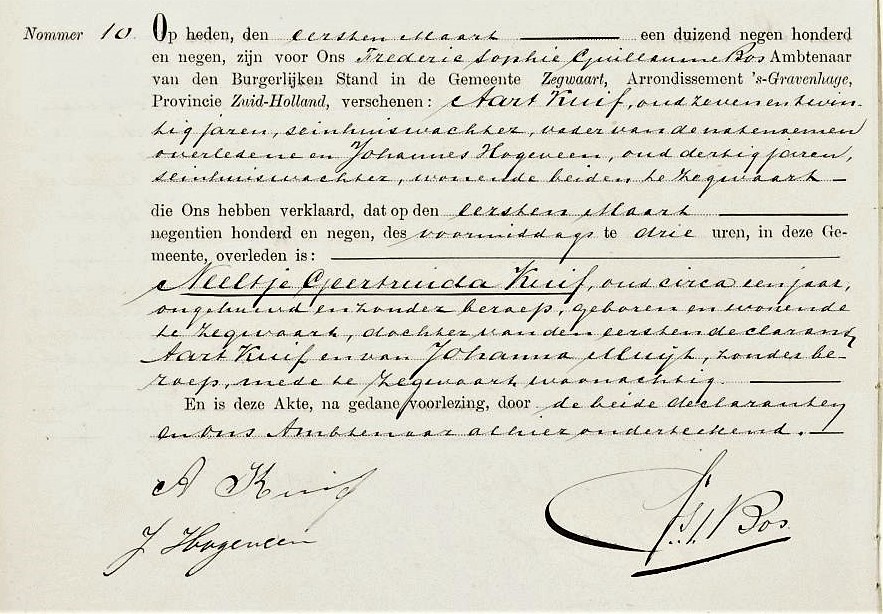 Nommer 10. Op heden, den eersten Maart een duizend negen honderd
en negen, zijn voor Ons Frederic Sophie Guillaume Bos Ambtenaar
van den Burgerlijken Stand in de Gemeente Zegwaart, Arrondissement 's-Gravenhage,
Provincie Zuid-Holland, verschenen: Aart Kuif, oud zeven en twin-
tig jaren, seinhuiswachter, vader van de natenoemen
overledene en Johannes Hogeveen, oud dertig jaren,
seinhuiswachter, wonende beiden te Zegwaart
die Ons hebben verklaard, dat op den eersten Maart
negentien honderd en negen, des voormiddags te drie uren, in deze Ge-
meente, overleden is:
Neeltje Geertruida Kuif, oud circa een jaar,
ongehuwd en zonder beroep, geboren en wonende
te Zegwaart, dochter van den eersten declarant
Aart Kuif en van Johanna Muijt, zonder be-
roep, mede te Zegwaart woonachtig.
En is deze Akte, na gedane voorlezing, door de beide declaranten
en ons Ambtenaar alhier onderteekend.
A Kuif
J Hogeveen
Bos.